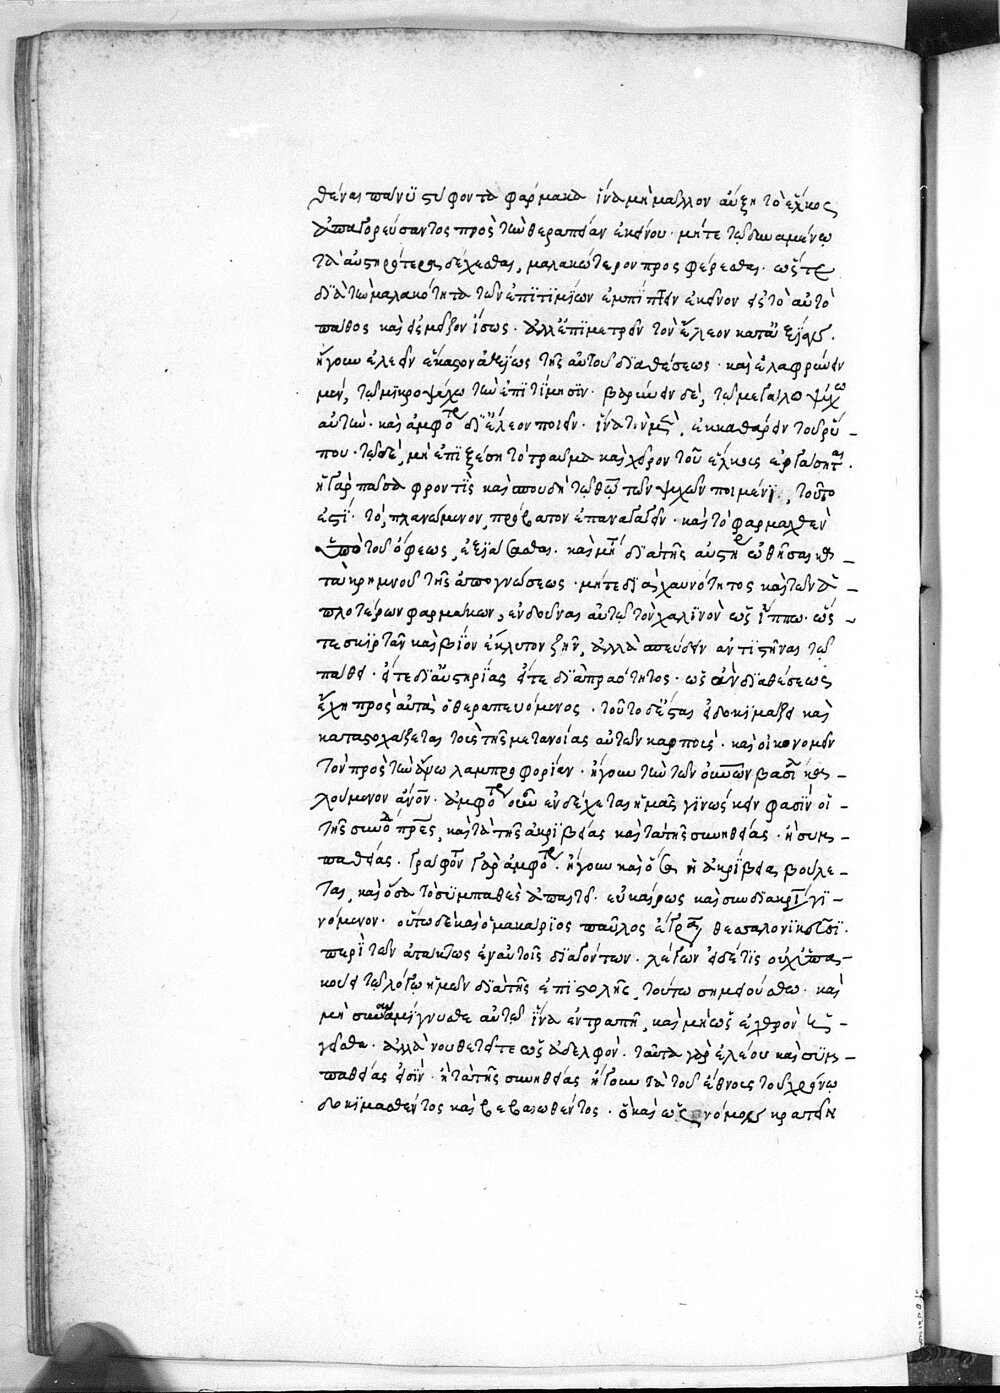 θέναι πάνυ στύφοντα φάρμακα ἵνα μὴ μᾶλλον αὔξη τὸ ἕλκος
ἀπαγορεύσαντος πρὸς τὴν θεραπείαν ἐκείνου· μήτε τῷ δυναμένῳ
τὰ αὐστηρότερα δέχεσθαι, μαλακώτερον προσφέρεσθαι· ὥστε
διὰ τὴν μαλακότητα τῶν ἐπιτιμίων ἐμπίπτειν ἐκεῖνον εἰς τὸ αὐτὸ
πάθος καὶ μεῖζον ἴσως· ἀλλ' ἐπιμετρεῖν τὸν ἔλεον κατ' ἀξίαν.
ἤγουν ἐλεεῖν ἕκαστον ἀξίως τῆς αὐτοῦ διαθέσεως· καὶ ἐλαφρύνειν
μέν, τῷ μικροψύχω τὴν ἐπιτίμησιν· βαρύνειν δέ, τῷ μεγαλοψύχω
αὐτήν· καὶ ἀμφότερα δι' ἔλεον ποιεῖν· ἵνα τὸν μὲν, ἐκκαθάρειν τοῦ ῥύ-
που· τῷ δέ, μὴ ἐπιξέση τὸ τραῦμα καὶ χεῖρον τοῦ ἕλκους ἐργάσηται.
ἡ γὰρ πᾶσα φροντὶς καὶ σπουδὴ τῷ θεῷ τῶν ψυχῶν ποιμένι, τοῦτο
ἐστί· τό, πλανώμενον, πρόβατον ἐπαναγαγεῖν· καὶ τὸ φαρμαχθὲν
ὑπὸ τοῦ ὄφεως, ἐξιάσασθαι· καὶ μήτε διὰ τῆς αὐστηρ ὠθῆσαι κατὰ
τὰ κρημνοῦ τῆς ἀπογνώσεως· μήτε διὰ χαυνότητος καὶ τῶν ἁ-
πλοτέρων φαρμάκων, ἐνδοῦναι αὐτῷ τὸν χαλινὸν ὡς ἵππω· ὥσ-
τε σκιρτᾶν καὶ βίον ἔκλυτον ζῆν, ἀλλὰ σπεύδειν ἀντιστῆναι τῷ
πάθει· εἴτε δι' αὐστηρίας εἴτε διὰ πραότητος· ὡς ἂν διαθέσεως
ἔχη πρὸς αὐτὰ ὁ θεραπευόμενος· τοῦτο δὲ ἔσται εἰ δοκιμάζει καὶ
καταστοχάζεται τοὺς τῆς μετανοίας αὐτῶν καρπούς· καὶ οἰκονομεῖν
τὸν πρὸς τὴν ἄνω λαμπροφορίαν· ἤγουν τὴν τῶν οὐνῶν βασι κα-
λούμενον ἄνον· ἀμφότερα οὖν ἐνδέχεται ἡμᾶς γινώσκειν φασὶν οἱ
τῆς συνόδ πρες, καὶ τὰ τῆς ἀκριβείας καὶ τὰ τῆς συνηθείας· ἢ συμ-
παθείας· γραφὸν γὰρ ἀμφότερα· ἤγουν καὶ ὅσα ἡ ἀκρίβεια βούλε-
ται, καὶ ὅσα τὸ συμπαθὲς ἀπαιτεῖ· εὐκαίρως καὶ σὺν διακρίσει γι-
νόμενον· οὕτω δὲ καὶ ὁ μακάριος παῦλος ἔγραψε θεσσαλονικεῦσι·
περὶ τῶν ἀτάκτως ἐν αὐτοῖς διαγόντων· λέγων εἰ δέ τις οὐχ ὑπα-
κούει τῷ λόγῳ ἡμῶν διὰ τῆς ἐπιστολῆς, τοῦτω σημειοῦσθω· καὶ
μὴ συναναμίγνυσθε αὐτῷ ἵνα ἐντραπῆ, καὶ μὴ ὡς ἐχθρὸν ἡ-
γεῖσθε· ἀλλὰ νουθετεῖτε ὡς ἀδελφόν· ταῦτα γὰρ ἐλέου καὶ συμ-
παθείας εἰσίν· ἢ τὰ τῆς συνηθείας ἤγουν τὰ τοῦ ἔθνους τοῦ χρόνω
δοκιμασθέντος καὶ βεβαιωθέντος· ὃ καὶ ὡς νόμος κρατεῖν